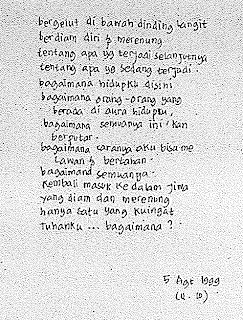 bergelut di bawah dinding langit
berdiam diri & merenung
tentang apa yg terjadi selanjutnya
tentang apa yg sedang terjadi.
bagaimana hidupku disini
bagaimana orang-orang yang
berada di aura hidupku,
bagaimana semuanya ini 'kan
berputar.
bagaimana caranya aku bisa me
lawan & bertahan.
bagaimana semuanya.
Kembali masuk ke dalam jiwa
yang diam dan merenung
hanya satu yang kuingat
Tuhanku ... bagaimana ?
5 Agt 1999